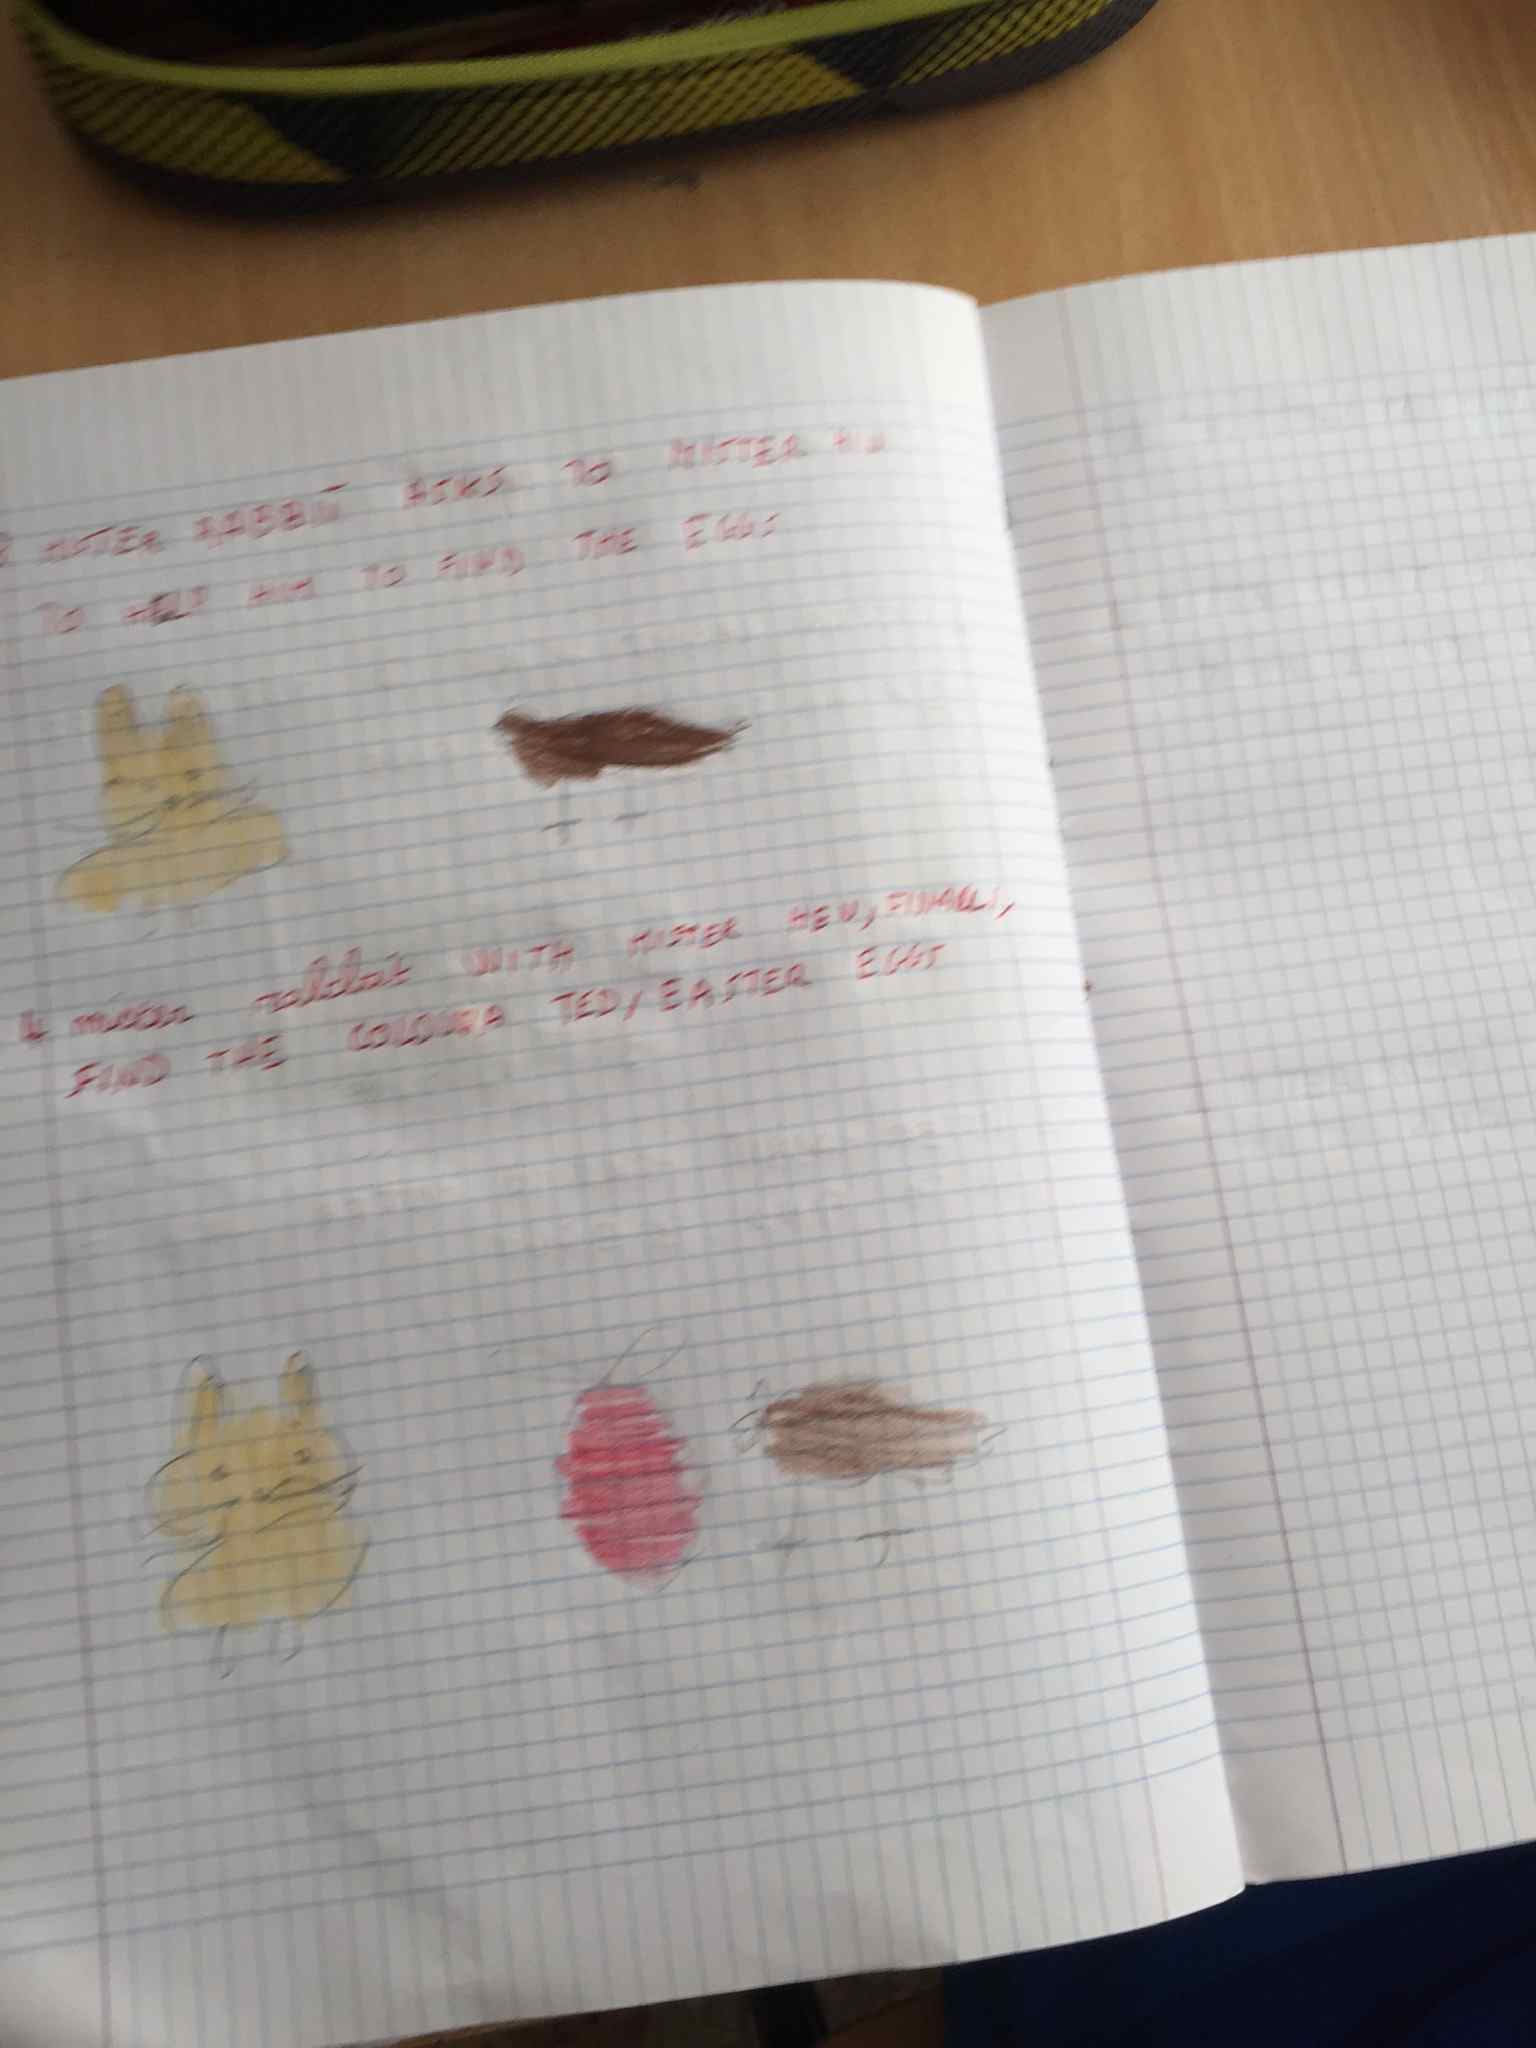 3 MISTER RABBIT ASKS TO MISTER
TO HELP HIM TO FIND THE EGGS
4 mister rabbit WITH MISTER HEN,
FIND THE TED/EASTER EGGS